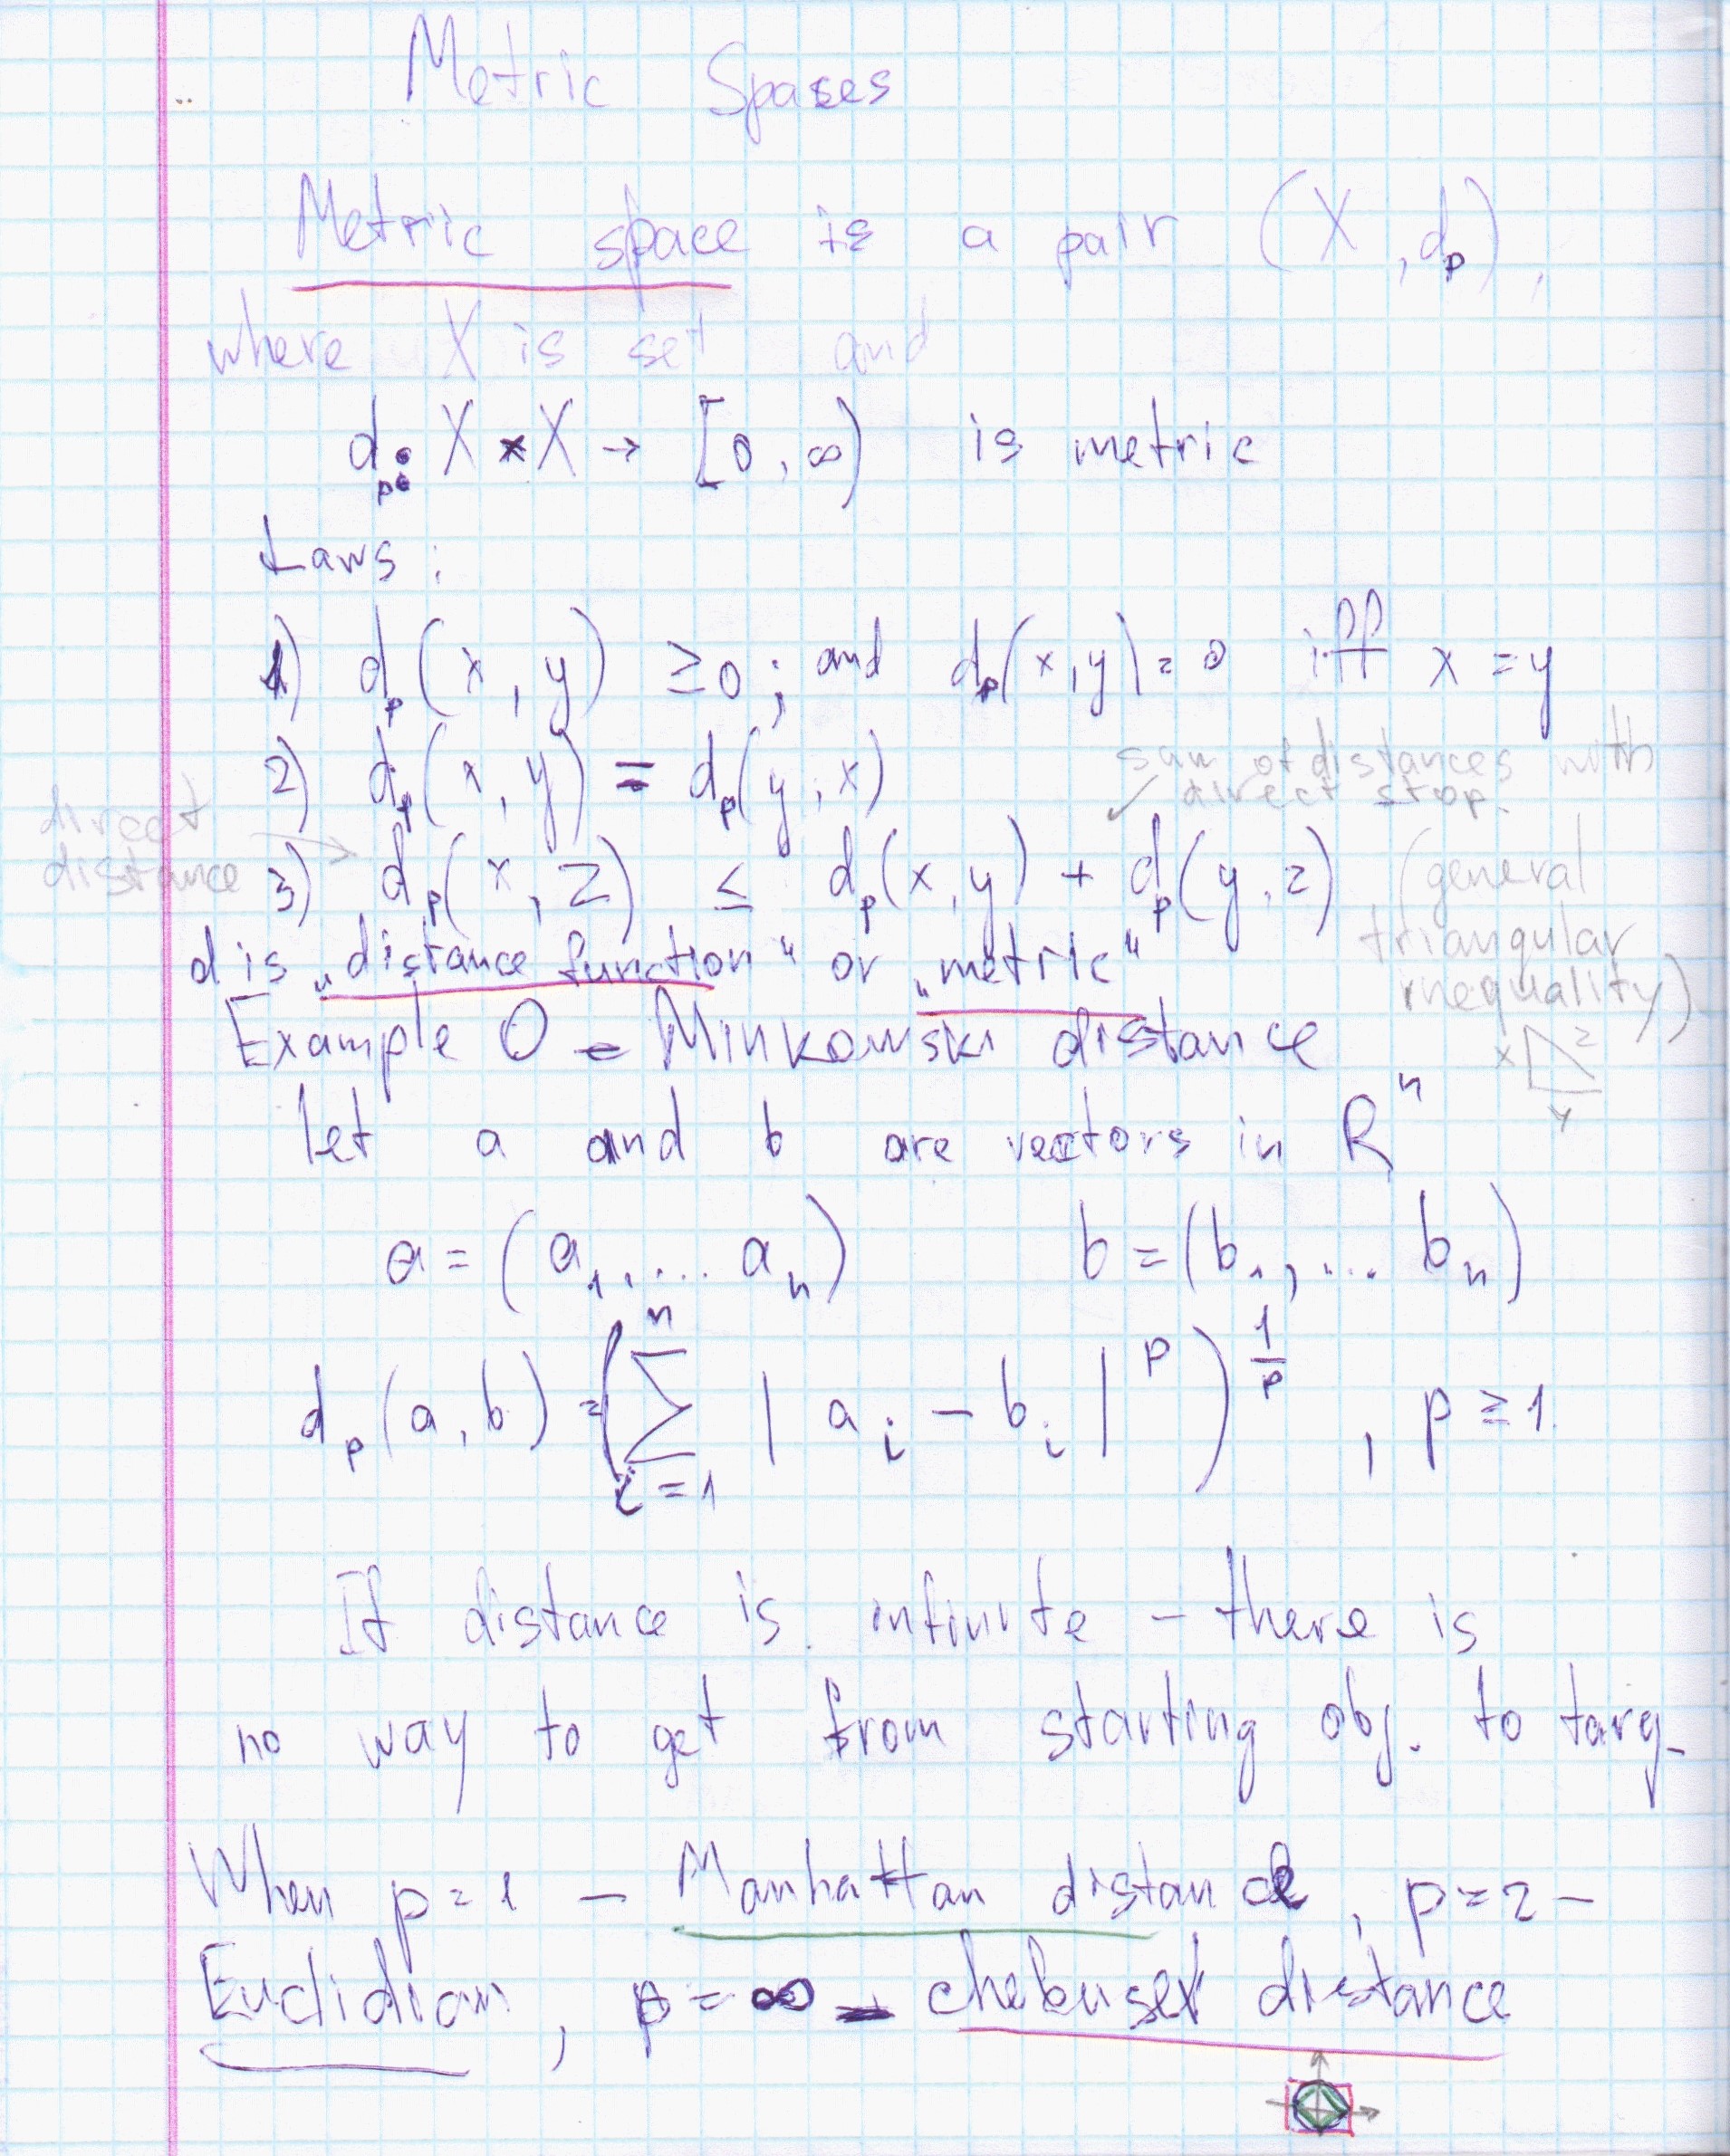 Metric Spaces
Metric space is a pair (X, dₚ),
where X is set and
dₚ: X * X → [0, ∞) is metric
Laws:
1) dₚ(x, y) ≥ 0; and dₚ(x, y) = 0 iff x = y
2) dₚ(x, y) = dₚ(y, x)
sum of distances with
direct stop.
direct
distance
3) dₚ(x, z) ≤ dₚ(x, y) + dₚ(y, z)
(general
triangular
inequality)
d is „distance function“ or „metric“
Example 0 - Minkowski distance
x z
y
let a and b are vectors in Rⁿ
a = (a₁, ... aₙ) b = (b₁, ... bₙ)
dₚ(a, b) = (∑ⁿᵢ₌₁ | aᵢ - bᵢ |ᵖ)^(1/p), p ≥ 1.
If distance is infinite - there is
no way to get from starting obj. to targ.
When p = 1 - Manhattan distance, p = 2 -
Euclidian, p = ∞ - chebusev distance